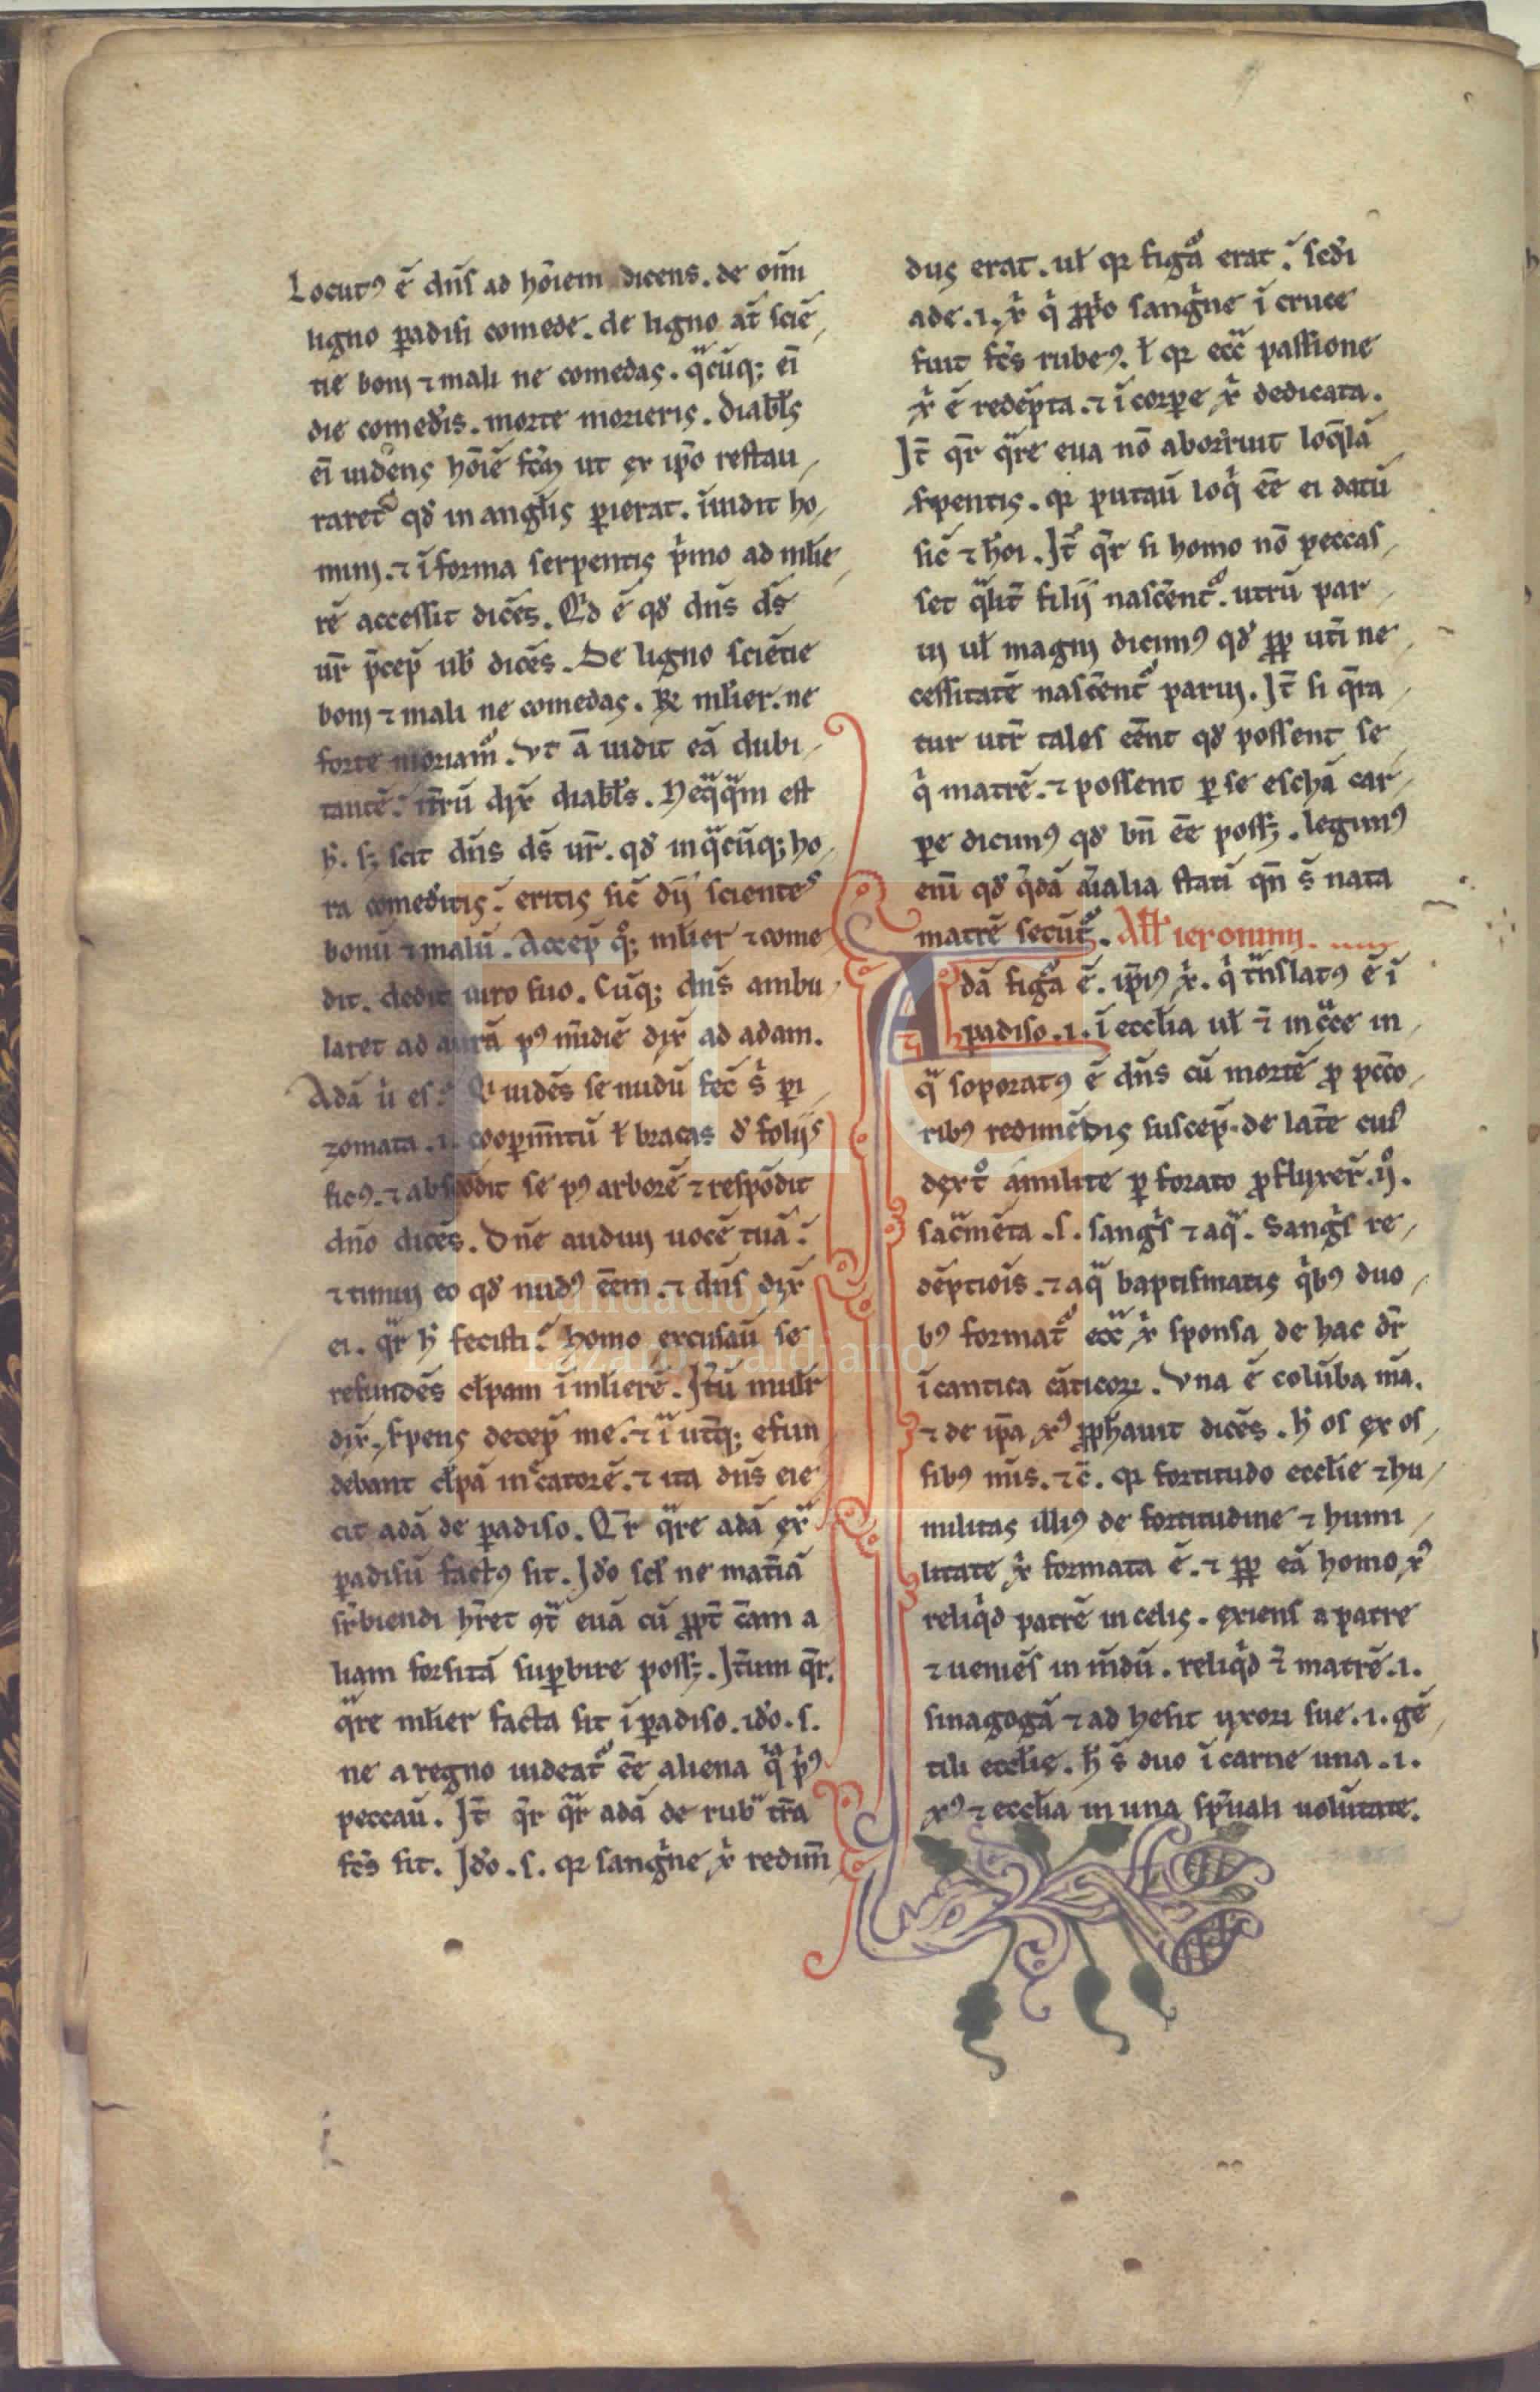 Locutꝰ ē dn̄s ad ho̅iem dicens. de om̅i
ligno ꝑadisi comede. de ligno at̅ scie̅
tie boni ⁊ mali ne comedas. qͣcu̅q; ei̅
die comed̓is. morte morieris. diabl̓s
ei̅ uidens ho̅ie̅ fc̅m ut ex ip̅o restau
raret᷑ qd̓ in angl̓is ꝑierat. i̅uidit ho
mini. ⁊ i̅ forma serpentis pͥmo ad ml̓ie
re̅ accessit dice̅s. Qͥd ē qd̓ dn̄s ds̄
ur̅ p̅cep̅ ub̓ dice̅s. De ligno scie̅tie
boni ⁊ mali ne comedas. R̵ ml̓ier. ne
forte moriam᷑. Vt a̅ uidit ea̅ dubi
tante̅. it̅ru̅ dix̅ diabl̓s. Neqͣqͣm est
h̓. sꝫ scit dn̄s ds̄ ur̅. qd̓ in qͣcu̅q; ho
ra comed̓itis. eritis sic̅ dii scientes
bonu̅ ⁊ malu̅. Accep̅ qͦ; ml̓ier ⁊ come
dit. dedit uiro suo. Cu̅q; dn̄s ambu
laret ad aura̅ pꝰ m̅idie̅ dix̅ ad adam.
Ada̅ u̓i es. Qͥ uide̅s se nudu̅ fec̅ sͥ ꝑi
zomata .i. cooꝑim̅tu̅ ł bracas d̓ foliis
ficꝰ. ⁊ abspo̅dit se pꝰ arbore̅ ⁊ respo̅dit
dn̅o dice̅s. Dn̅e audiui uoce̅ tua̅.
⁊ timui eo qd̓ nudꝰ ee̅m. ⁊ dn̄s dix̅
ei. qr̅ h̓ fecisti. homo excusau̅ se
refunde̅s cl̓pam i̅ ml̓iere̅. It̅u̅ mul̓r
dix̅. s̓pens decep̅ me. ⁊ iͣ ut̅q; efun
debant cl̓pa̅ in c̓catore̅. ⁊ ita dn̄s eie
cit ada̅ de ꝑadiso. Qr̅ qͣre ada̅ exͣ
ꝑadisu̅ factꝰ sit. Id̓o scl̓ ne mat̅ia̅
sr̓biendi hr̅et ꝯtͣ eua̅ cu̅ ꝓpt̅ c̅am a
liam forsita̅ suꝑbire possꝫ. It̅um qr̅.
qͣre ml̓ier facta sit i̅ ꝑadiso. id̓o .s.
ne a regno uideat᷑ ee̅ aliena qͣ pͥꝰ
peccau̅. It̅ qr̅ qͣr ada̅ de rubͣ tr̅a
fc̅s sit. Id̓o .s. qꝛ sangͥne xͥ redim̅
dus erat. ul̓ qꝛ figͣ᷑ erat. sc̅di
ade .i. xͥ qͥ ꝓpͥo sangͥne i̅ cruce
fuit fc̅s rubeꝰ. ł qꝛ ecc̅ passione
xͥ ē rede̅pta. ⁊ i̅ corꝑe xͥ dedicata.
It̅ qr̅ qͣre eua no̅ aborruit loq̅la̅
s̓pentis. qꝛ putau̅ loqͥ ee̅ ei datu̅
sic̅ ⁊ ho̅i. It̅ qr̅ si homo no̅ peccas
set qͣlit̅ filii nasce̅nt᷑. utru̅ par
ui ul̓ magni dicimꝰ qd̓ ꝓp ut̅i ne
cessitate̅ nasce̅nt᷑ parui. It̅ si q̅ra
tur utr̅ tales ee̅nt qd̓ possent se
qͥ matre̅. ⁊ possent ꝑ se escha̅ car
ꝑe dicimꝰ qd̓ bn̅ ee̅ possꝫ. legimꝰ
eni̅ qd̓ qͥda̅ ai̅alia stati̅ qn̅ s̅ nata
matre̅ secu̅t᷑. Atl̓ ieronimi.
Ada̅ figͣ ē. ip̅iꝰ xͥ. qͥ tͣnslatꝰ ē i̅
ꝑadiso .i. i̅ eccl̓ia ul̓ ⁊̅ in cͣce in
qͣ soporatꝰ ē dn̄s cu̅ morte̅ ꝓ pcc̅o
ribꝰ redime̅dis suscep̅. de lat̅e cuiꝰ
dext͛o a milite ꝑforato ꝓfluxer̅ .ii.
sacͣme̅ta .s. sangͥs ⁊ aqͣ. Sangͥs re
de̅ptiois̅. ⁊ aqͣ baptismatis qͥbꝰ duo
bꝰ format᷑ ecc̅ xͥ sponsa de hac dr̅
i̅ cantica ca̅ticoꝝ. Vna ē colu̅ba m̅a.
⁊ de ip̅a xꝰ ꝓphauit dice̅s. h̓ os ex os
sibꝰ m̅is. ⁊c̅. qꝛ fortitudo eccl̓ie ⁊ hu
militas illiꝰ de fortitudine ⁊ humi
litate xͥ formata ē. ⁊ ꝓp ea̅ homo xꝰ
reliqͥd patre̅ in celis. exiens a patre
⁊ uenie̅s in mu̅du̅. reliqͥd ⁊̅ matre̅ .i.
sinagoga̅ ⁊ ad hesit uxori sue .i. ge̅
tili eccl̓ie. h̓ s̅ duo i̅ carne una .i.
xꝰ ⁊ eccl̓ia in una sp̅uali uolu̅tate.
Fundación
Lázaro Galdiano